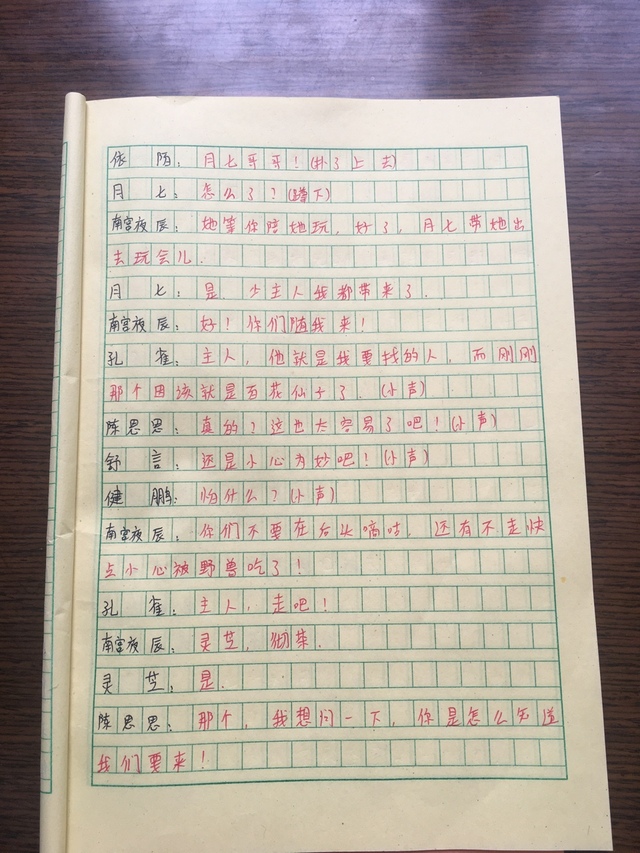 依陌：月七哥哥！(扑了上去)
月七：怎么了？(蹲下)
南宫夜辰：她等你陪她玩，好了，月七带她出
去玩会儿.
月七：是. 少主人我都带来了.
南宫夜辰：好！你们随我来！
孔雀：主人，他就是我要找的人，而刚刚
那个因该就是百花仙子了.(小声)
陈思思：真的？这也太容易了吧！(小声)
舒言：还是小心为妙吧！(小声)
健鹏：怕什么？(小声)
南宫夜辰：你们不要在后头嘀咕，还有不走快
点小心被野兽吃了！
孔雀：主人，走吧！
南宫夜辰：灵芝，彻茶.
灵芝：是.
陈思思：那个，我想问一下，你是怎么知道
我们要来！